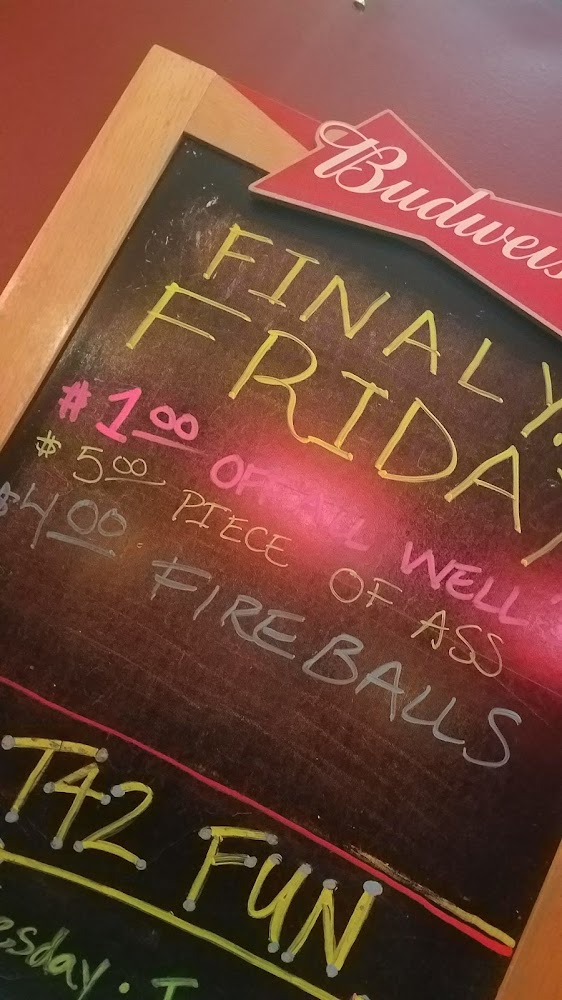 Budweis
FINALY
FRIDAY
$1.00 OFF ALL WELL
$5.00 PIECE OF ASS
$4.00 FIREBALLS
T42 FUN
esday. T